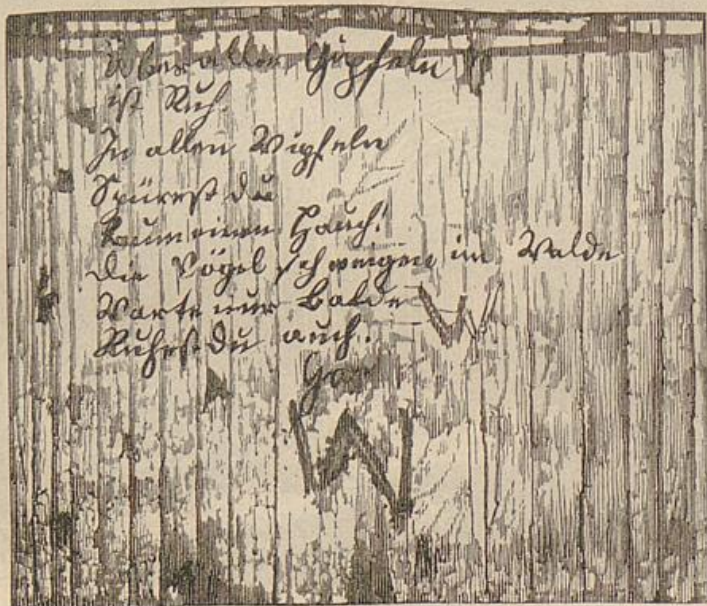 Über allen Gipfeln
ist Ruh.
In allen Wipfeln
Spürest du
Kaum einen Hauch!
Die Vögel schweigen im Walde
Warte nur Balde
Ruhest Du auch.
W
W